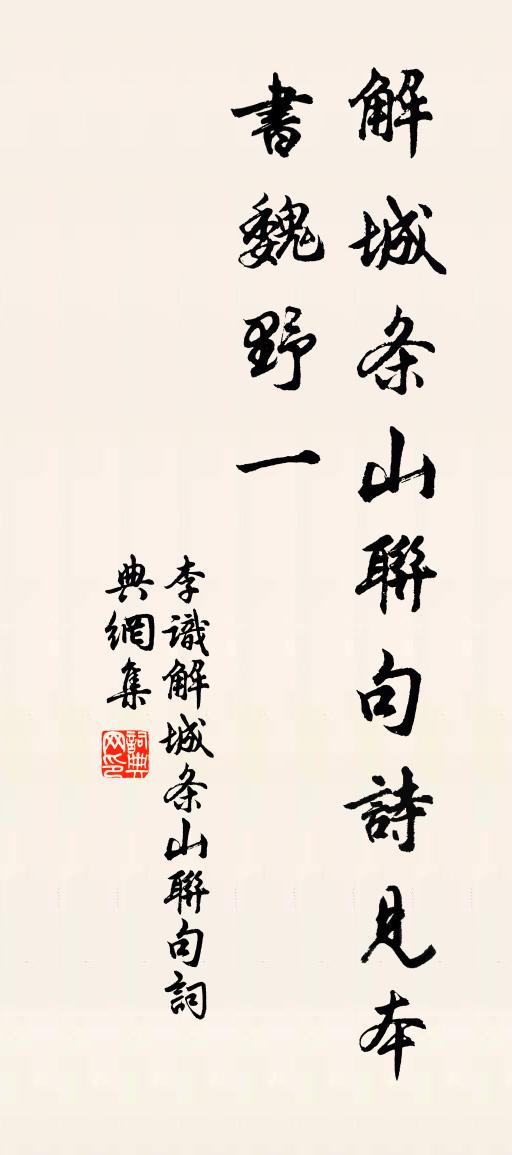 解城条山聯句詩見本
書魏野一
李識解城条山聯句詞
典網集
詞典
网印